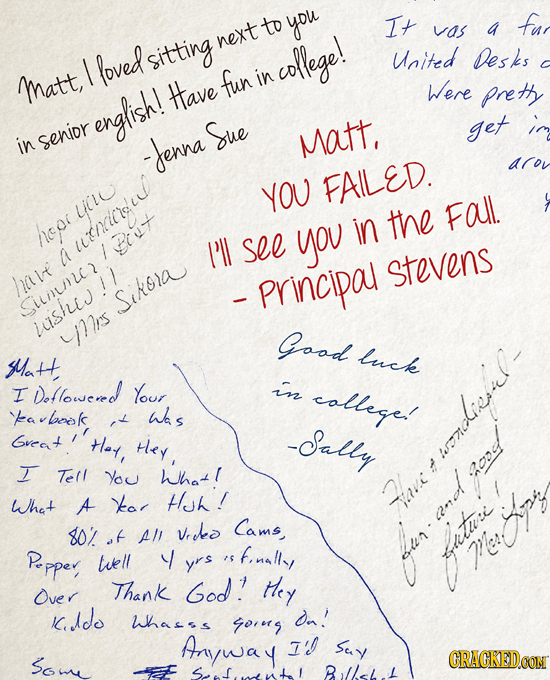 Matt, I loved sitting next to you
in senior english! Have fun in college!
-Jenna Sue
It was a fun
United Desks
Were pretty
get
Matt,
YOU FAILED.
I'll see you in the Fall.
- Principal Stevens
hope you
have a wonderful
Summer! Best
wishes!!
Mrs Sikora
Good luck
in college!
-Sally
Matt,
I Deflowered Your
Yearbook, it Was
Great!" Hey, Hey,
I Tell You What!
What A Year Huh!
80% of All Video Cams,
Pepper, Well 4 yrs is finally
Over Thank God! Hey
Kiddo Whasss going On!
Anyway I'd Say
Some Sentimental Bullsh.t
Have a wonderful-
fun- and good
future!
Mrs.
CRACKED.COM